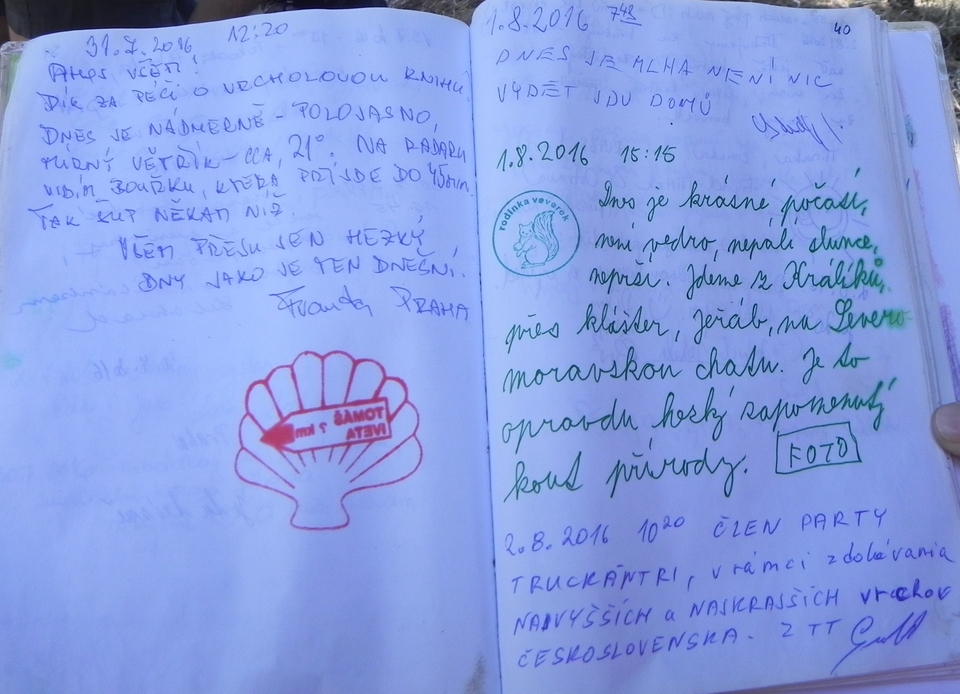 31.7.2016 12:20
AHOJ VŠEM!
DÍK ZA PÉČI O VRCHOLOVOU KNIHU.
DNES JE NÁDHERNĚ - POLOJASNO,
MÍRNÝ VĚTŘÍK - CCA, 21°. NA RADARU
VIDÍM BOUŘKU, KTERÁ PŘIJDE DO 45min.
TAK ŠUP NĚKAM NÍŽ.
VŠEM PŘEJU JEN HEZKÝ
DNY JAKO JE TEN DNEŠNÍ.
Franta PRAHA
TOMÁŠ
IVETA
? km
1.8.2016 748
40
DNES JE MLHA NENÍ NIC
VYDĚT JDU DOMŮ
1.8.2016 15:15
rodinka veverek
Dnes je krásné počasí,
není vedro, nepálí slunce,
neprší. Jdeme z Králíků,
přes klášter, Jeřáb, na Severo-
moravskou chatu. Je to
opravdu hezký zapomenutý
kout přírody. FOTO
2.8.2016 10 20 ČLEN PARTY
TRUCKÁNTRI, v rámci zdobávania
NAJVYŠŠÍCH a NAJKRAJŠÍCH vrchov
ČESKOSLOVENSKA. Z TT